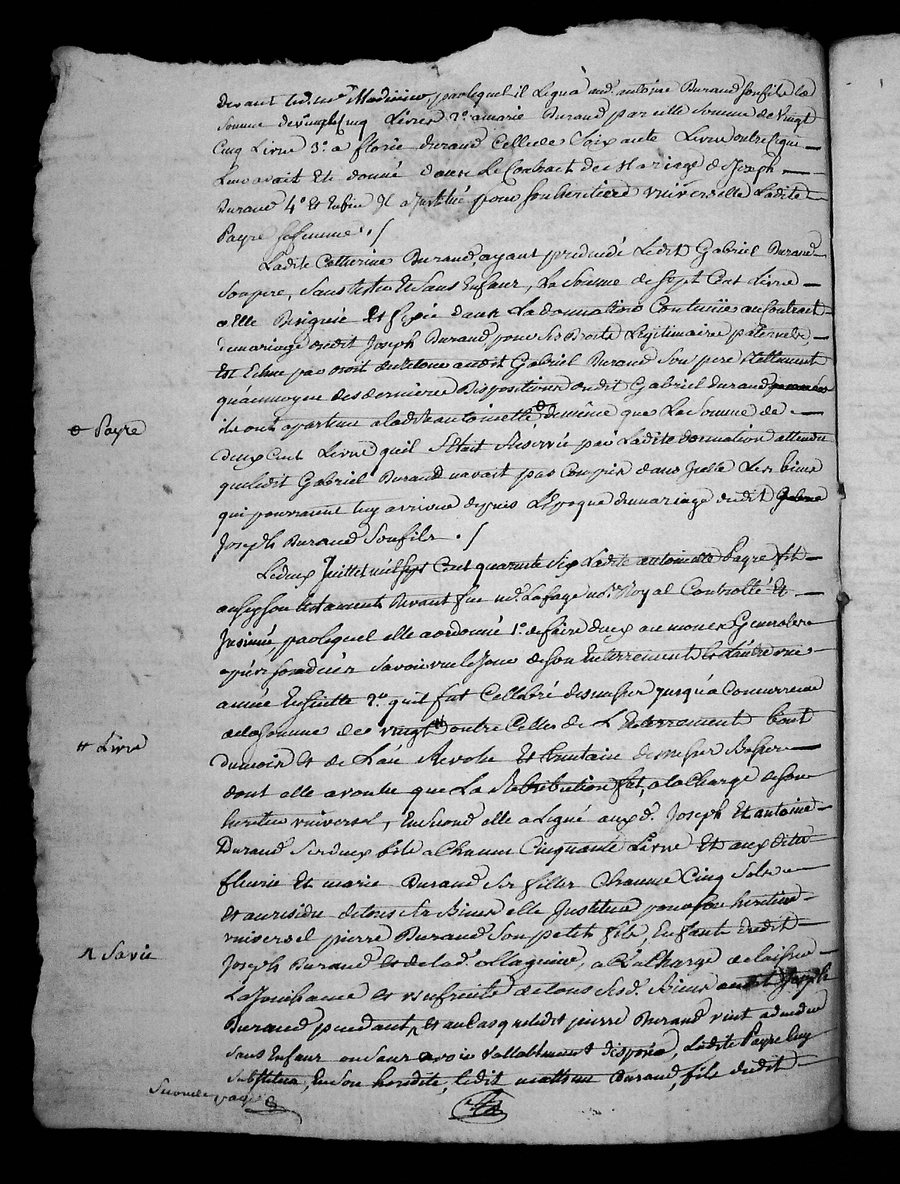 devant led. me. Modinier par lequel il légua aud. antoine Durand son fils la
somme de vingt Cinq Livres 2.° a marie Durand pareille Somme de vingt
Cinq Livre 3.° a florie durand Celle de Soixante Livre outre Ce qui
Luy avait Eté donné dans Le Contract de Mariage de Joseph
Durand 4.° Et Enfin Il a Justitué pour son heritiere universelle Ladite
Payre sa femme ./
Ladite Catherine Durand, ayant prédécédé Ledit Gabriel Durand
Son pere, Sans tester Et Sans Enfans, La Somme de Sept Cent Livre
a Elle Assignée Et fixée dans La donnation Contenue au Contract
de mariage dudit Joseph Durand pour Ses droits Légitimaire paternels
Est Echue par droit de Retour audit Gabriel Durand Son pere tellement
qu'au moyen des dernieres dispositions dudit Gabriel Durand
ils ont apartenu a ladite antoinette de même que La Somme de
deux Cent Livre qu'il S'était Réservée par Ladite donnation attendu
que ledit Gabriel Durand n'avait pas Compris dans Icelle Les biens
qui pourraient luy arriver depuis L'Epoque du mariage du dit
Joseph Durand Son fils ./
Le deux Juillet mil sept Cent quarante Six Ladite antoinette Payre fit
aussy son testament Devant feu me. Lafage no.re Royal Controllé Et
Insinué, par lequel elle a ordonné 1.° de faire deux aumones Générales
après son décès Savoir une le Jour de Son Enterrement Et l'autre une
année Ensuitte 2.° qu'il fut Cellebré des messes Jusqu'a Concurrence
de la Somme de vingt # outre Celles de L'Enterrement bout
du mois Et de L'an Revolu Et trentain de messes Basses
dont elle a voulu que La Rétribution fut, a la Charge de Son
heritier universel, En Second elle a Légué aux d. Joseph Et antoine
Durand Ses deux fils a Chacun Cinquante Livre Et aux dites
fleurie Et marie Durand Ses filles Chacune Cinq Sols
Et au residu de tous Ses Biens elle Institua pour son heritier
universel pierre Durand Son petit fils, Enfant dudit
Joseph Durand Et de lad. a la Charge de laisser
La Jouissance Et usufruit de tous Sesd. Biens audit Joseph
Durand pendant ^, Et au Cas que ledit pierre Durand vint a deceder
Sans Enfans ou Sans avoir vallablement disposé, Ladite Payre luy
Substitua, En Son heredite, ledit mathieu Durand, fils dudit
Payre
# Livre
^ Sa vie
Seconde page